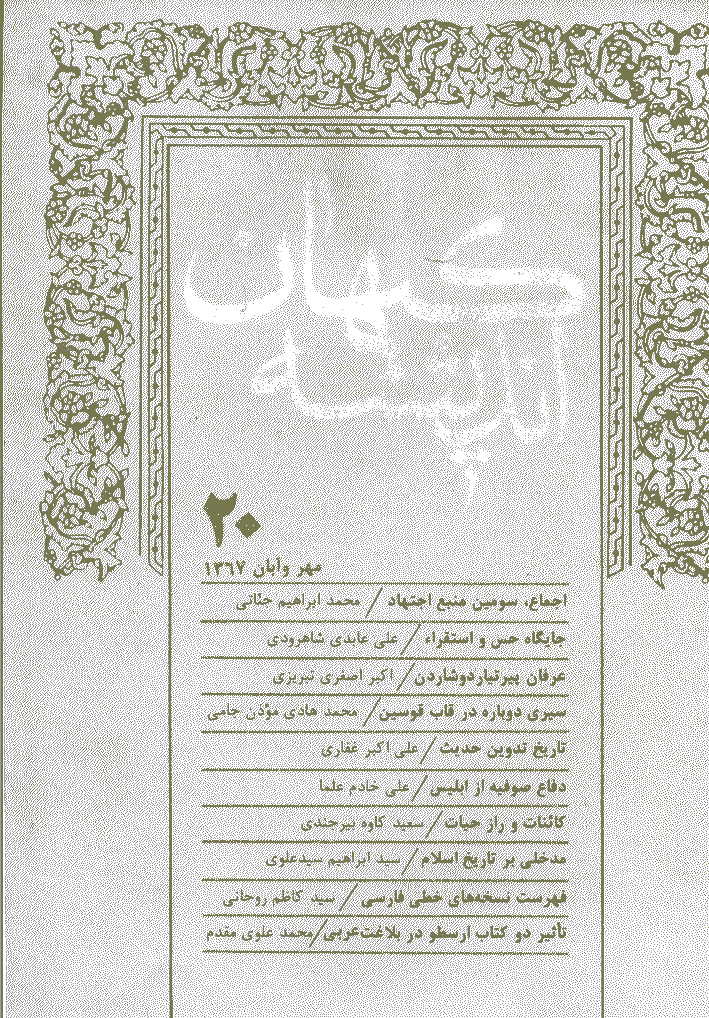 کیهان
اندیشه
۲۰
مهر وآبان ۱۳۶۷
اجماع، سومین منبع اجتهاد / محمد ابراهیم جناتی
جایگاه حس و استقراء / علی عابدی شاهرودی
عرفان پیرتیاردوشاردن / اکبر اصغری تبریزی
سیری دوباره در قاب قوسین / محمد هادی مؤذن جامی
تاریخ تدوین حدیث / علی اکبر غفاری
دفاع صوفیه از ابلیس / علی خادم علما
کائنات و راز حیات / سعید کاوه بیرجندی
مدخلی بر تاریخ اسلام / سید ابراهیم سیدعلوی
فهرست نسخه‌های خطی فارسی / سید کاظم روحانی
تأثیر دو کتاب ارسطو در بلاغت‌عربی / محمد علوی مقدم